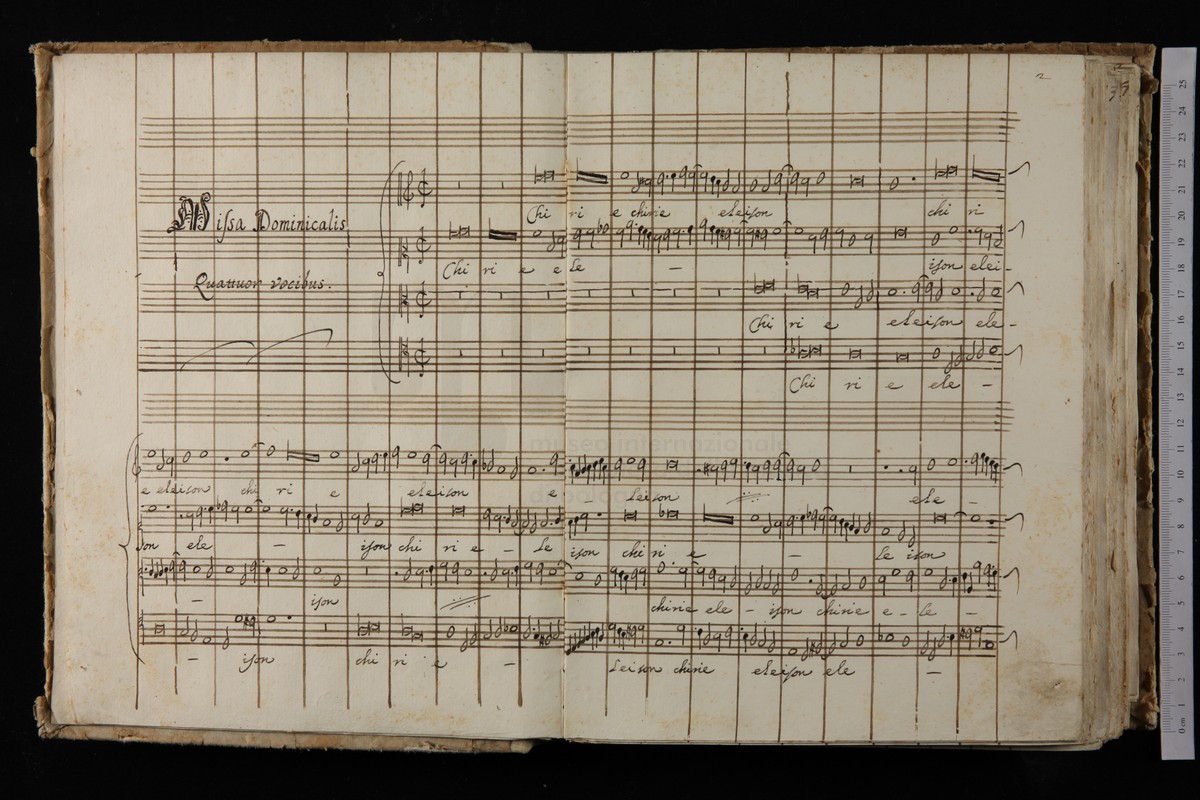 2
35
Missa Dominicalis
Quattuor vocibus.
Chi ri e chirie eleison chi ri
Chi ri e e le — ison elei-
Chi ri e eleison ele-
Chi ri e ele -
e eleison chi ri e eleison e leison ele -
ison ele - ison chi ri e - le ison chi ri e - le ison
- ison chirie ele - ison chirie e - le -
- ison chi ri e - leison chirie eleison ele -
museo internazionale
0 cm 1 2 3 4 5 6 7 8 9 10 11 12 13 14 15 16 17 18 19 20 21 22 23 24 25